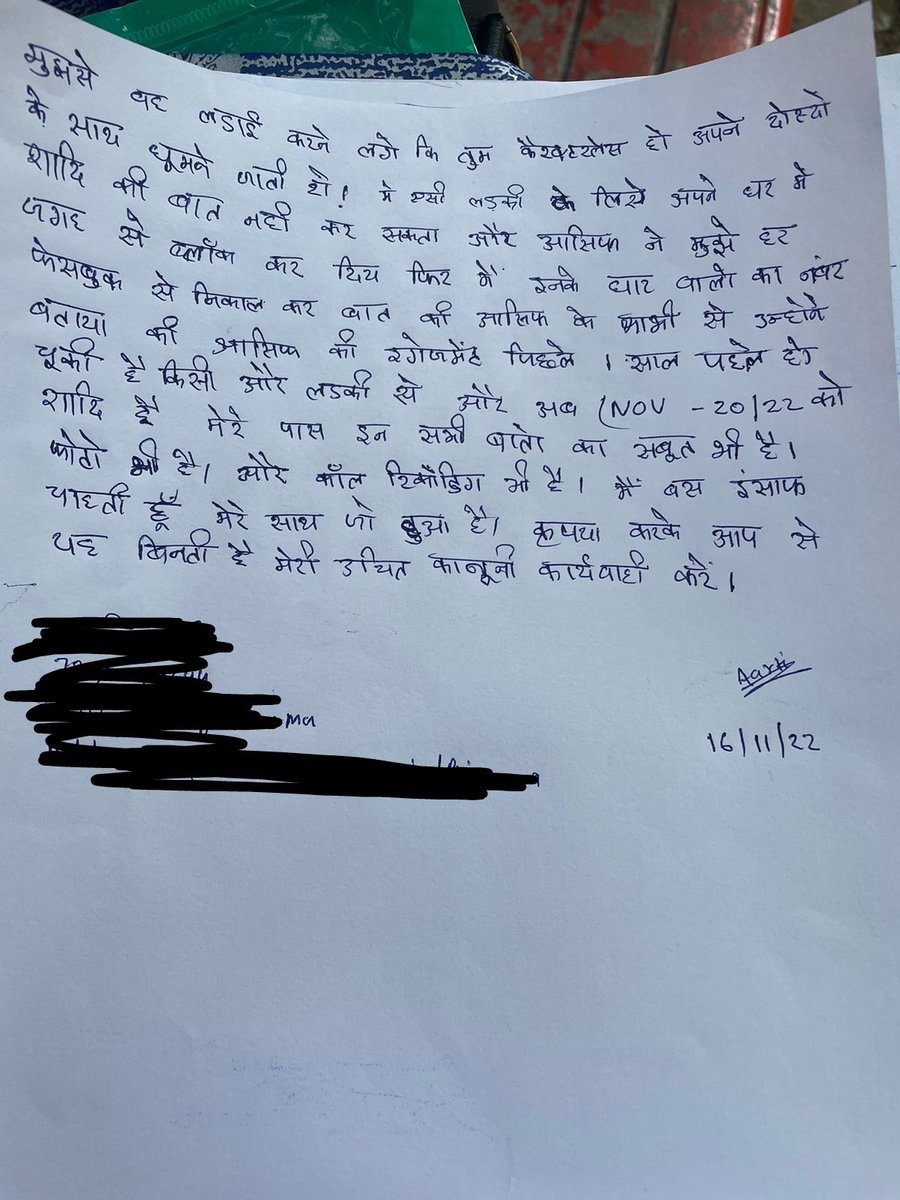 मुझसे वह लडाई करने लगे कि तुम कैरक्टरलेस हो अपने दोस्तो
के साथ घूमने जाती हो! मे एसी लड़की के लिये अपने घर मे
शादि की बात नही कर सकता और आसिफ ने मुझे हर
जगह से ब्लॉक कर दिय फिर मैं इनके घार वालो का नंबर
फेसबुक से निकाल कर बात की आसिफ के भाभी से उन्होने
बताया की आसिफ की इगेजमेंट पिछले 1 साल पहेल हो
चूकी है किसी और लडकी से और अब (NOV - 20/22 को
शादि है मेरे पास इन सभी बातो का सबूत भी है।
फोटो भी है। और कॉल रिकॉडिग भी है। मैं बस इंसाफ
चाहती हूँ मेरे साथ जो हुआ है। कृपया करके आप से
यह बिनती है मेरी उचित कानूनी कार्यवाही करें।
ma
Aarti
16/11/22